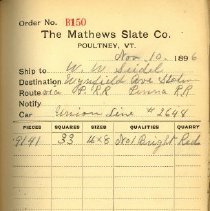 Order No. B150
The Mathews Slate Co.
POULTNEY, VT.
Nov 10. 1896
Ship to W. W. Seidel
Destination Wynfield Ave Statn
Route via P. RR Penna RR
Notify
Car Union Line # 2648
PIECES SQUARES SIZES QUALITIES QUARRY
9191 33 16x8 No1 Bright Red